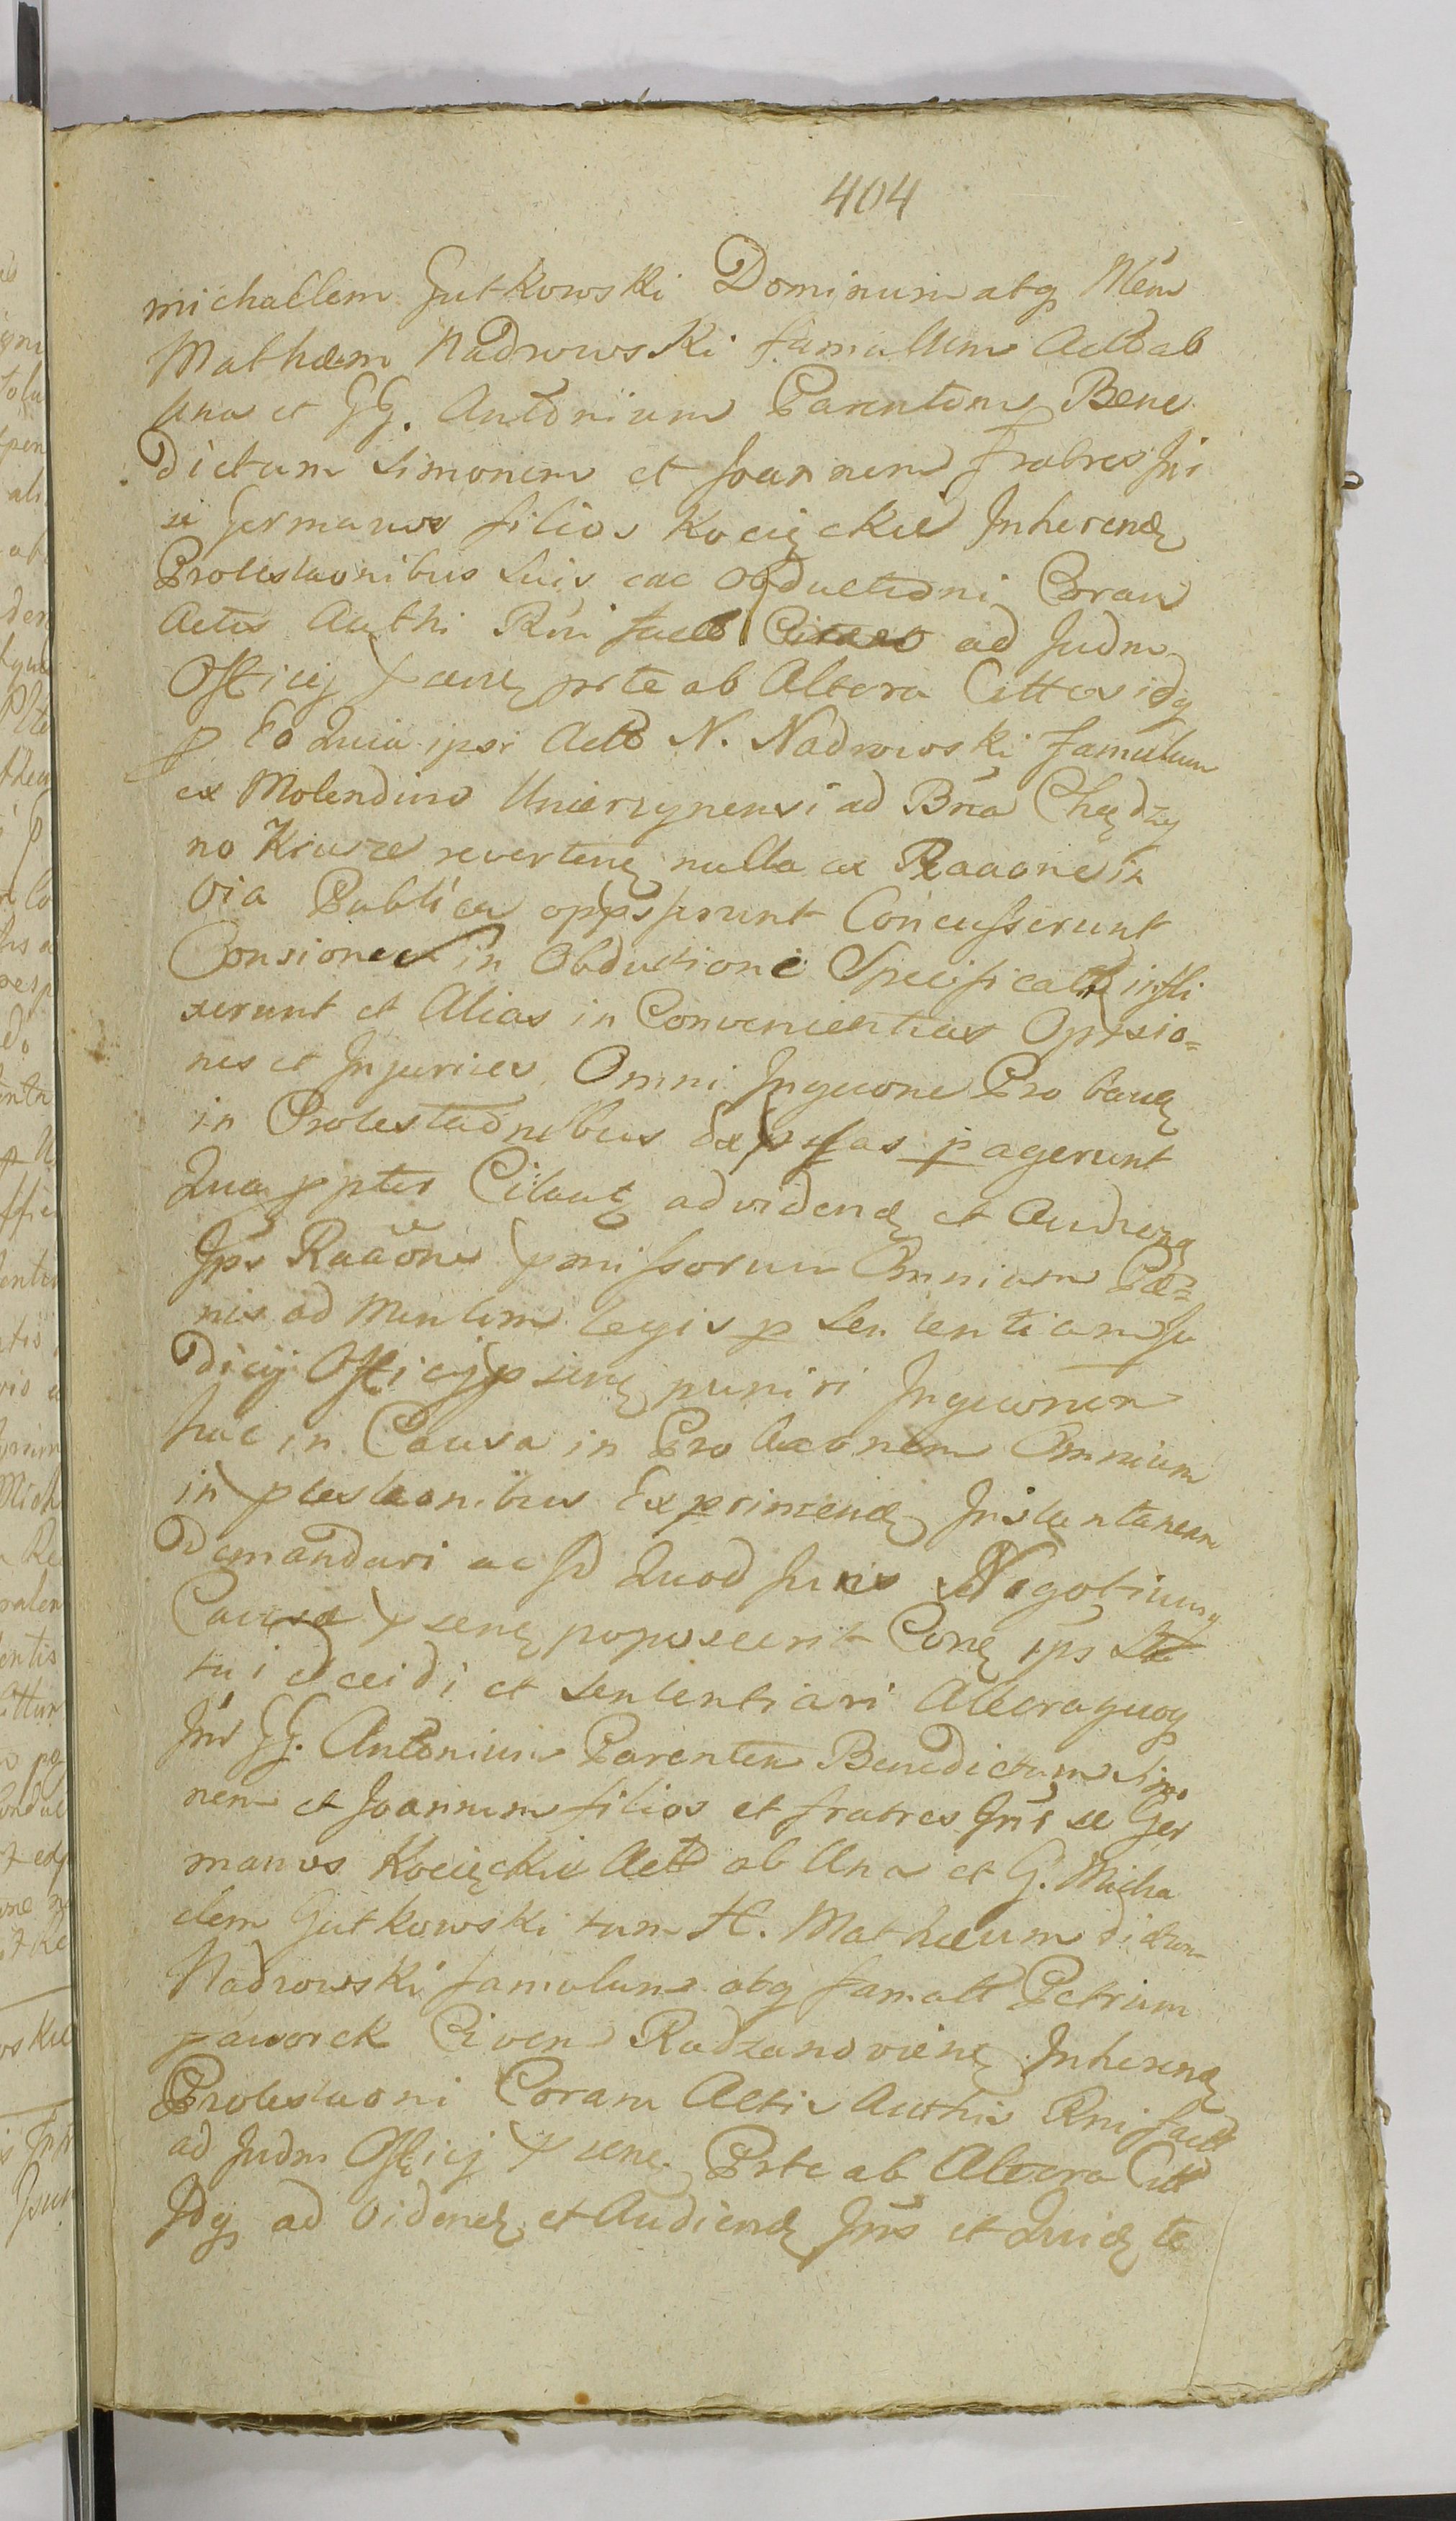 404
michaelem Gutkowski Dominum atq Mem
Mathæm Nadrowski famulum Actt ab
Una et GG. Antonium Parentem Bene
dictum Simonem et Joannem Fratres Jnt
se Germanos filios Kocięckie Inherend
Protestaonibus Suis eac Obductioni Coram
Actis Authi Rni factt ad Judm
Officij prte ab Altera Cittos idq
p Eo Quia ipsi Actt N. Nadrowski famulum
ex Molendino Unierzynensi ad Bna Chędzy
no Krusze revertenę nulla ex Raaone in
Via Publica oppsserunt Concusserunt
Consiones in Obductione Specificatt infli
xerunt et Alias in Convenientias Oppsio=
nes et Injurias Omni Inquone Pro band
in Protestaonibus Expssas pagerunt
Qua ppter Citant ad vidend et Audiend
Jps Raaone pmissorum Omnium Pæ=
nis ad Mentem legis p Sen tentiam Ju
dicij Officij psenę puniri Inquonem
hac in Causa in Pro baonem Omnium
in ptestaonibus Exprimend Instantaneam
Demandari ac id Quod Juris Negotiumq
Causæ psenę poposcerit Conę ips Sta
tui decidi et Sententiari Altera quoq
Jnt GG. Antonium Parentem Benedictum Simo
nem et Joannem filios et fratres Jnt se Ger
manos Kocięckie Actt ab Una et G. Micha
elem Gutkowski tum H. Mathæum dictum
Nadrowski famulum atq famatt Petrum
paworek Civem Radzanoviene Inherend
Protestaoni Coram Actis Authis Rni factt
ad Judm Officij psenę Prte ab Altera Citt
Idq ad Videnđ et Audiend Jpis et Quid te